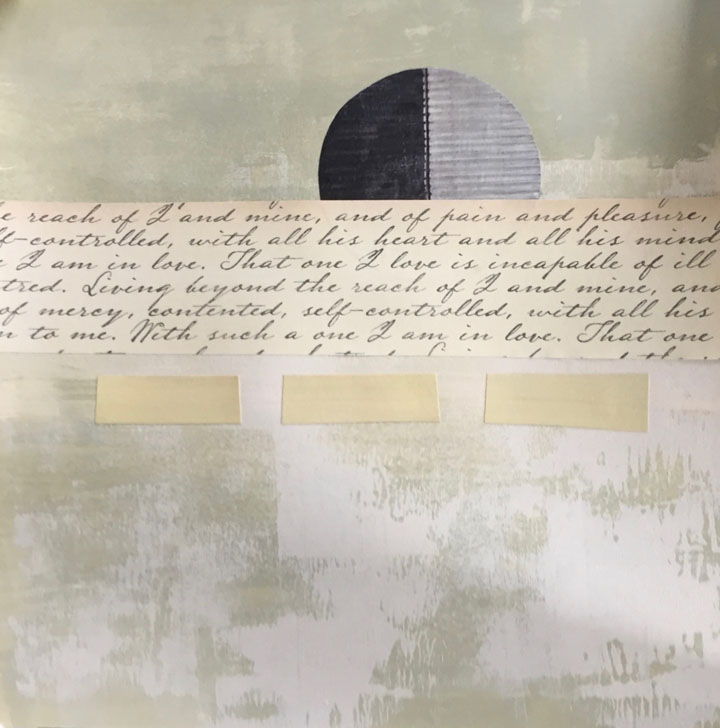 e reach of I and mine, and of pain and pleasure,
lf-controlled, with all his heart and all his mind
e I am in love. That one I love is incapable of ill
tred. Living beyond the reach of I and mine, and
of mercy, contented, self-controlled, with all his
n to me. With such a one I am in love. That one